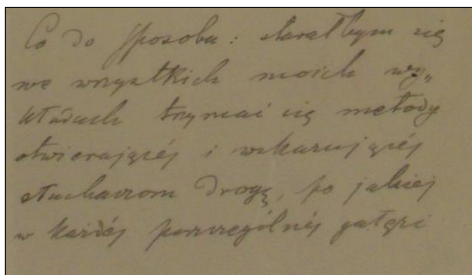 Co do sposobu: starałbym się
we wszystkich moich wy„
kładach trzymać się metody
otwierającéj i wskazującéj
słuchaczom drogę, po jakiej
w każdéj poszczególnéj gałęzi